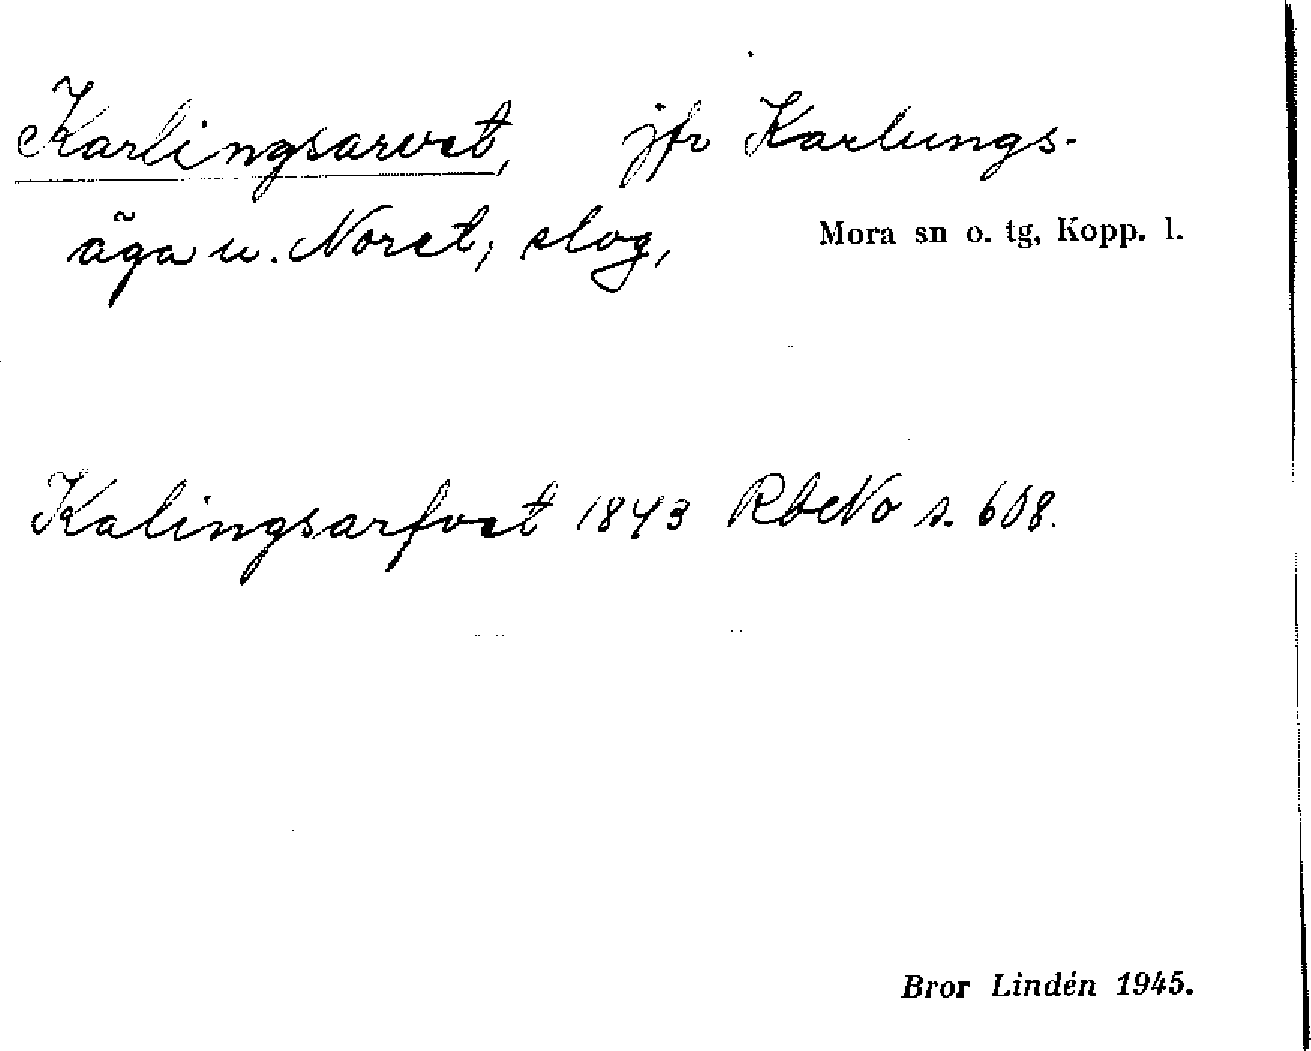 Karlingsarvet, jfr Karlungs-
äga u. Noret, slog,
Mora sn o. tg, Kopp. l.
Kalingsarfvet 1843 RbNo s. 608.
Bror Lindén 1945.